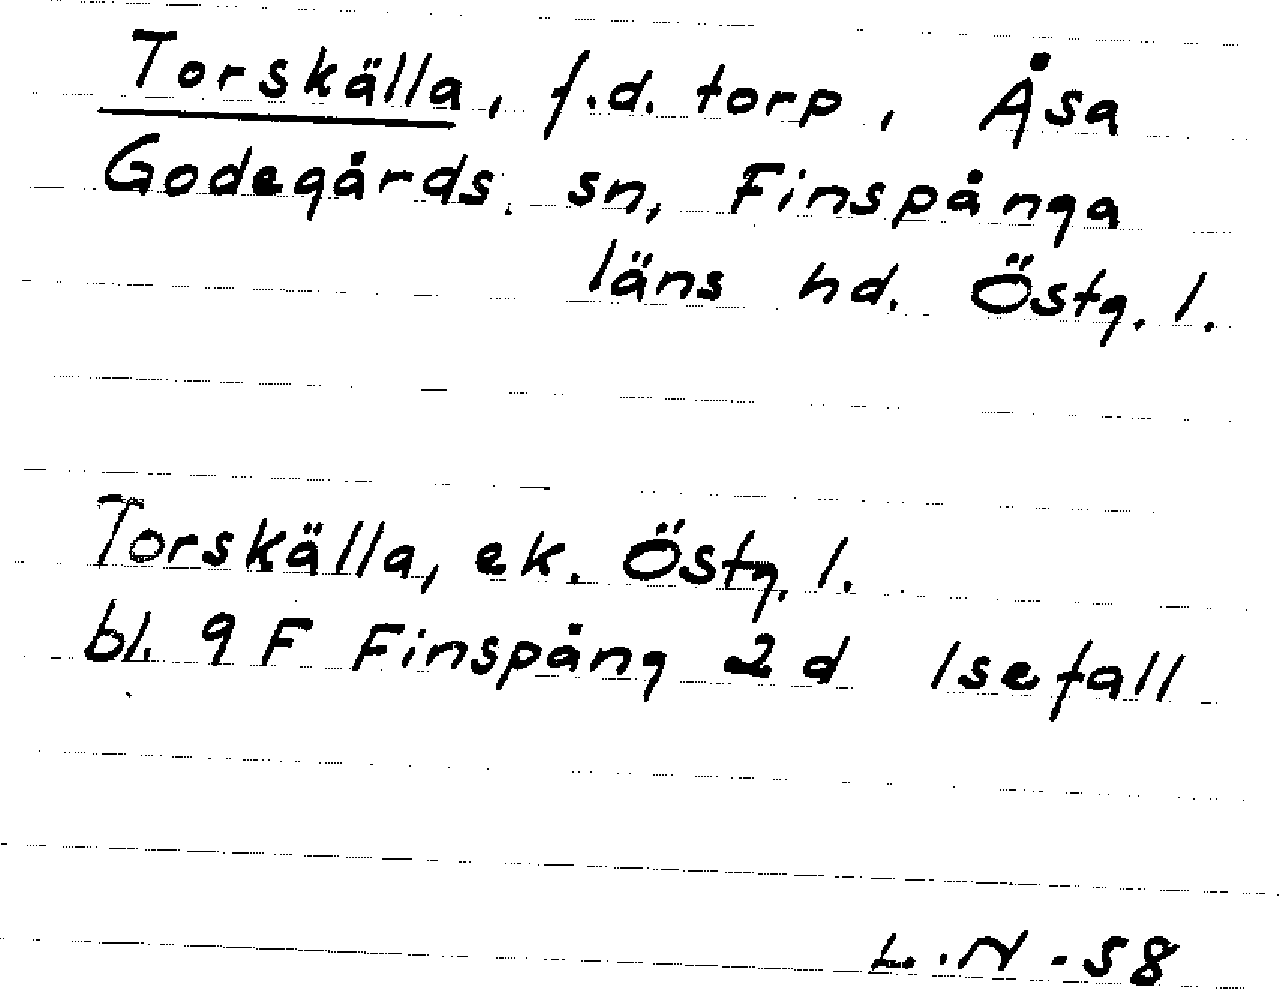 Torskälla, f.d. torp, Åsa
Godegårds sn, Finspånga
läns hd. Östg. l.
Torskälla, ek. Östg. l.
bl. 9 F Finspång 2 d Isefall
L.N -58